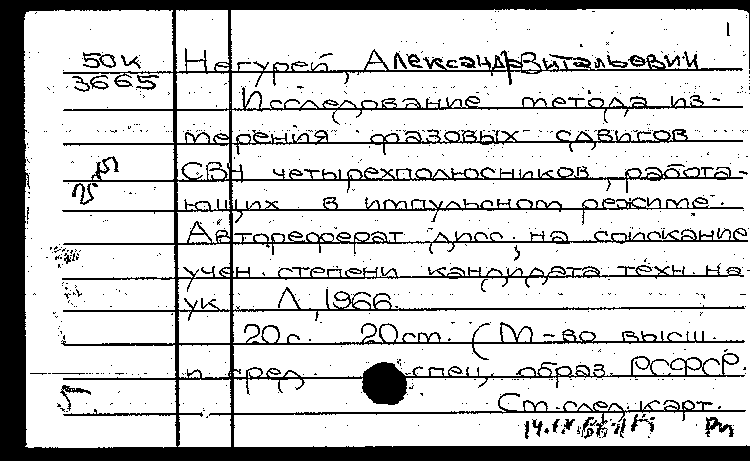 1
50К
3665
Негурей, Александр Витальевич
Исследование метода из-
мерения фазовых сдвигов
СВЧ четырехполюсников, работа-
ющих в импульсном режиме.
Автореферат дисс. на соискание
учен. степени кандидата техн. на
ук Л, 1966.
20с. 20см. (М-во высш.
и сред. спец. образ. РСФСР.
См. след. карт.